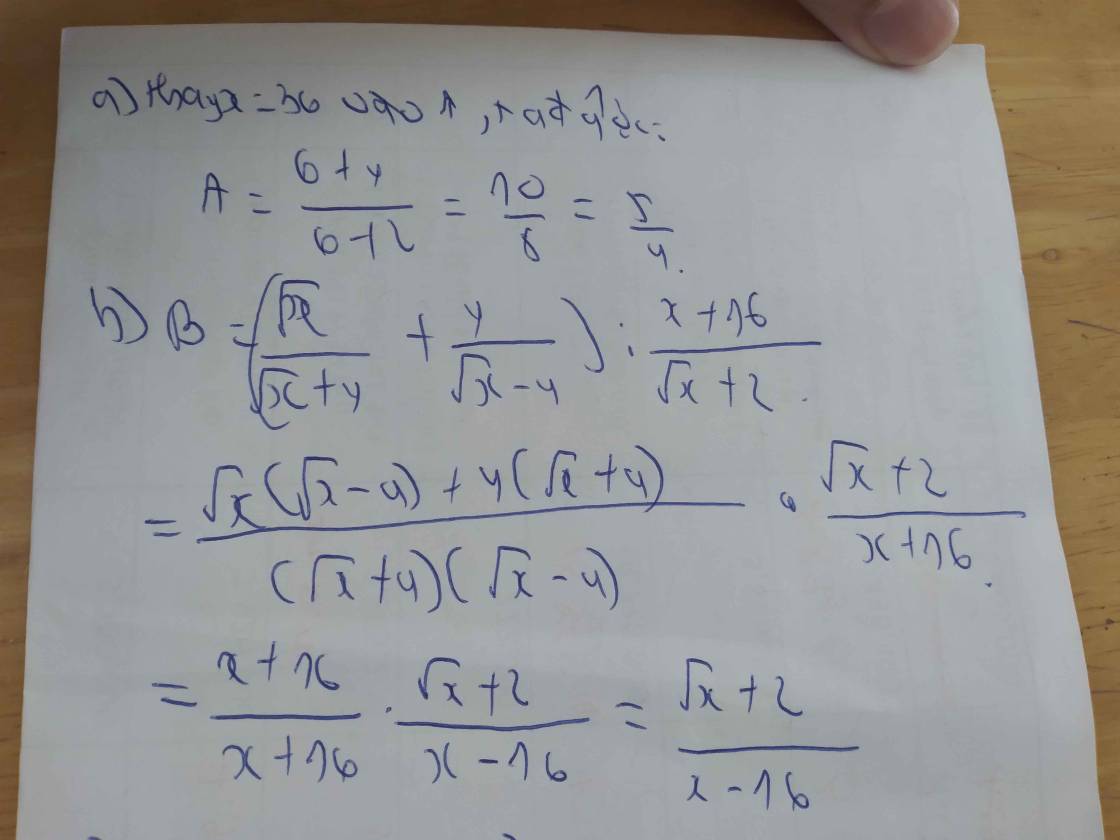 a) thay x = 36 vào A, ta được:
A = \frac{6+4}{6+2} = \frac{10}{8} = \frac{5}{4}.
b) B = \left(\frac{\sqrt{x}}{\sqrt{x}+4} + \frac{4}{\sqrt{x}-4}\right) : \frac{x+16}{\sqrt{x}+2}.
= \frac{\sqrt{x}(\sqrt{x}-4)+4(\sqrt{x}+4)}{(\sqrt{x}+4)(\sqrt{x}-4)} \cdot \frac{\sqrt{x}+2}{x+16}.
= \frac{x+16}{x+16} \cdot \frac{\sqrt{x}+2}{x-16} = \frac{\sqrt{x}+2}{x-16}